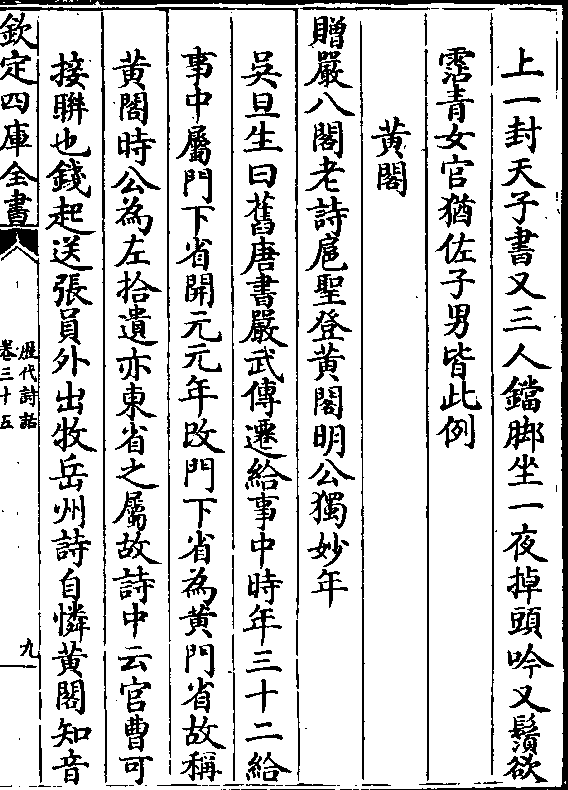 上一封天子書又三人鐺脚坐一夜掉頭吟又鬚欲
霑青女官猶佐子男皆此例
黄閣
贈嚴八閣老詩扈聖登黄閣明公獨妙年
吳旦生曰舊唐書嚴武傳遷給事中時年三十二給
事中屬門下省開元元年改門下省為黄門省故稱
黄閣時公為左拾遺亦東省之屬故詩中云官曹可
接聨也錢起送張員外出牧岳州詩自憐黄閣知音
欽定四庫全書
歷代詩話
卷三十五
九